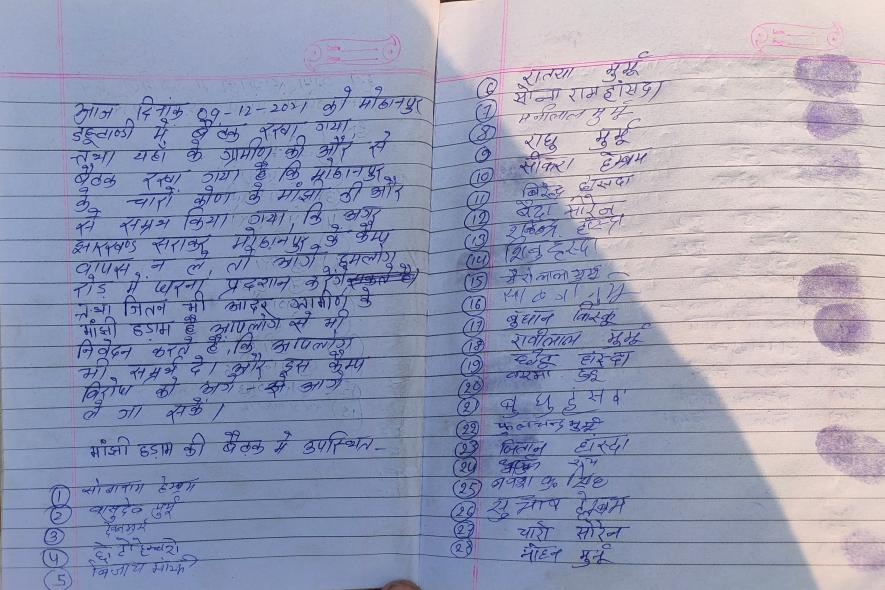 आज दिनांक 09-12-2021 को मोहानपुर
डहूटाण्डी में बैठक रखा गया
तथा यहां के ग्रामीण की और से
बैठक रखा गया है कि मोहानपुर
के चारों कोण के मांझी की और
से समथ्र किया गया, कि अगर
झारखण्ड सरकार मोहानपुर के कैम्प
वापस न ले, तो आगे हमलोग
रोड में धारना प्रदशान करेंगे
तथा जितने भी आदर ग्रामीण के
मांझी हड़ाम है आपलोग से भी
निवेदन करते है, कि आपलोग
भी समथ्र दे। और इस कैम्प
विरोध को आगे से आगे
ले जा सकें।
मांझी हड़ाम की बैठक में उपस्थित-
① हेम्ब्रम
② वासुदेव मुर्मू
③
④
⑤ विजाय मांझी
⑥ मुर्मू
⑦ सोना राम हांसदा
⑧ मनीलाल मुर्मू
⑨ राधु मुर्मू
⑩ सीकरा हेम्ब्रम
⑪ बिरेन्द्र हांसदा
⑫ बैदा सोरेन
⑬
⑭
⑮ मुर्मू
⑯
⑰ बुधान किस्कू
⑱ रावीलाल मुर्मू
⑲ हांसदा
⑳
㉑
㉒ फुलचन्द मुर्मू
㉓ हांसदा
㉔
㉕
㉖ सुभाष हेम्ब्रम
㉗ चारो सोरेन
㉘ मोहन मुर्मू